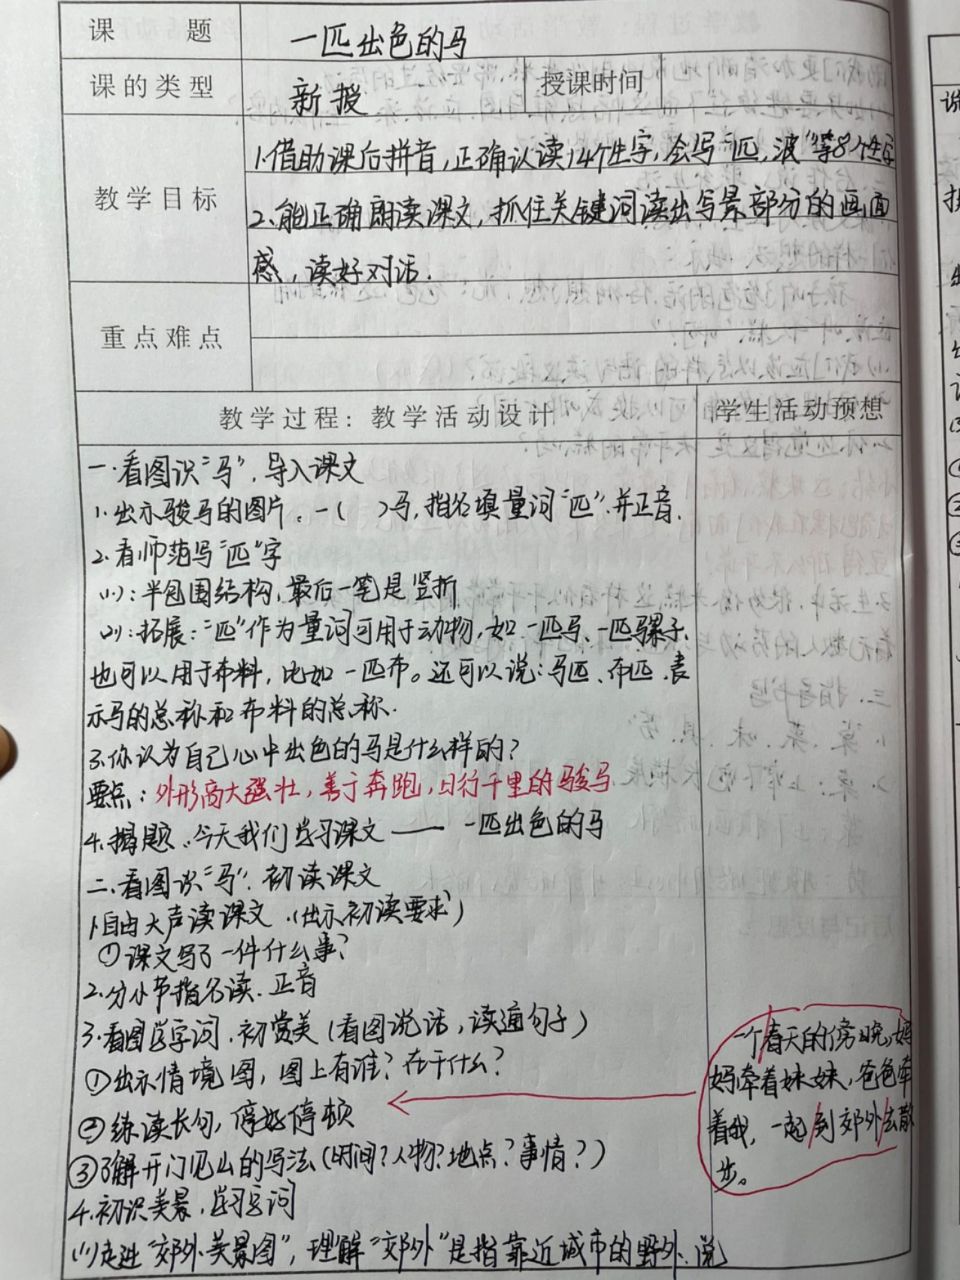 课 题 一匹出色的马
课的类型 新授 授课时间
教学目标
1.借助课后拼音,正确认读14个生字,会写“匹,波”等8个生字
2.能正确朗读课文,抓住关键词读出写景部分的画面
感,读好对话.
重点难点
教学过程:教学活动设计 学生活动预想
一.看图识“马”.导入课文
1.出示骏马的图片。一( )马,指名填量词“匹”.并正音.
2.看师范写“匹”字
(1):半包围结构,最后一笔是竖折
(2):拓展:“匹”作为量词可用于动物,如一匹马、一匹骡子.
也可以用于布料,比如一匹布。还可以说:马匹、布匹.表
示马的总称和布料的总称.
3.你认为自己心中出色的马是什么样的?
要点:外形高大强壮,善于奔跑,日行千里的骏马
4.揭题.今天我们学习课文——一匹出色的马
二.看图识“马”.初读课文
1.自由大声读课文.(出示初读要求)
①课文写了一件什么事?
2.分小节指名读.正音
3.看图学字词.初赏美(看图说话,读通句子)
①出示情境图,图上有谁?在干什么?
②练读长句,停好停顿
③了解开门见山的写法(时间?人物?地点?事情?)
4.初识美景.学习字词
(1)走进“郊外美景图”,理解“郊外”是指靠近城市的野外.说
一个春天的傍晚,妈
妈牵着妹妹,爸爸牵
着我,一起到郊外去散
步。